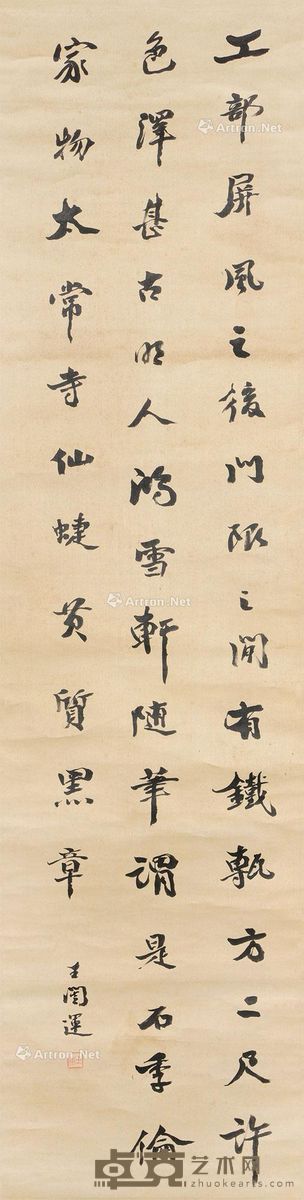 工部屏風之後門限之閒有鐵甎方二尺許
色澤甚古明人鴻雪軒随筆謂是石季倫
家物太常寺仙蜨黄質黑章
王闓運
Artron.Net
Artron.Net
Artron.Net
卓克艺术网
www.zhuokearts.com